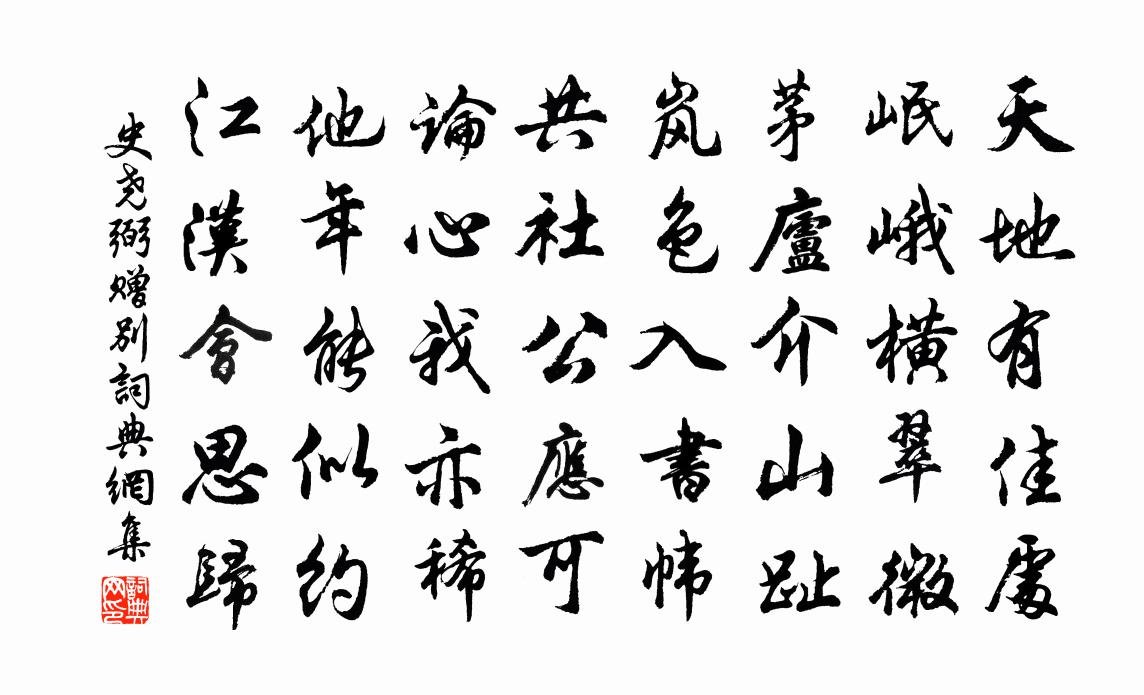 天地有佳處
岷峨橫翠微
茅廬介山趾
岚色入書幃
共社公應可
論心我亦稀
他年能似約
江漢會思歸
史尧弼赠别詞典網集
詞典網印